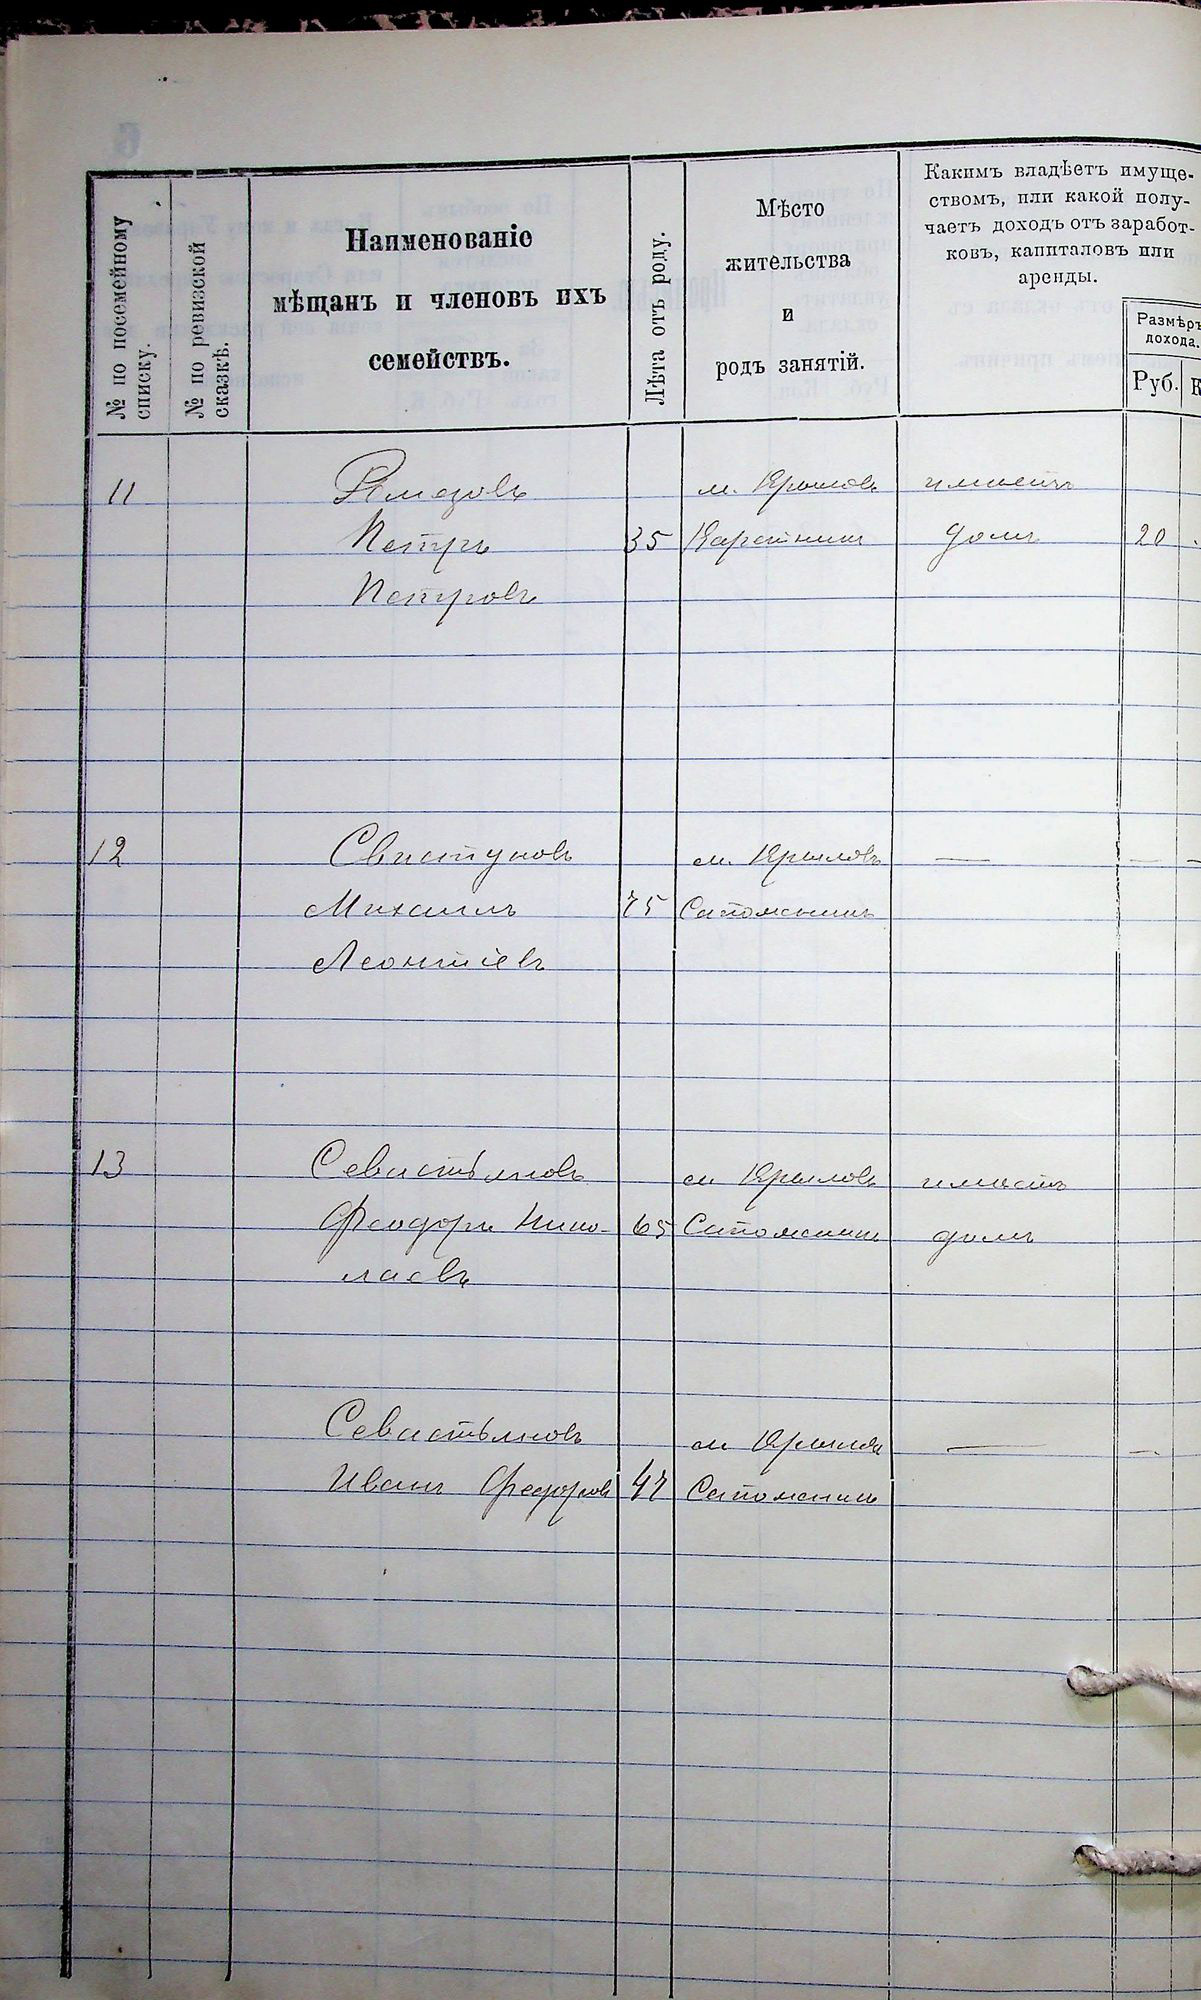 № по посемейному
списку.
№ по ревизской
сказкѣ.
Наименованіе
мѣщанъ и членовъ ихъ
семействъ.
Лѣта отъ роду.
Мѣсто
жительства
и
родъ занятій.
Каким владѣетъ имуще-
ствомъ, или какой полу-
чаетъ доходъ отъ заработ-
ковъ, капиталовъ или
аренды.
Размѣръ
дохода.
Руб.
К
11 м. Крыловъ имѣетъ
Петръ 35 домъ 20
Петровъ
12 Свистуновъ м. Крыловъ — — —
Михаилъ 75 Сапожникъ
Леонтіевъ
13 Севастьяновъ м Крыловъ имѣетъ
Феодоръ Нико- 65 Сапожникъ домъ
лаевъ
Севастьяновъ м Крыловъ — —
Иванъ Федоровъ 47 Сапожникъ